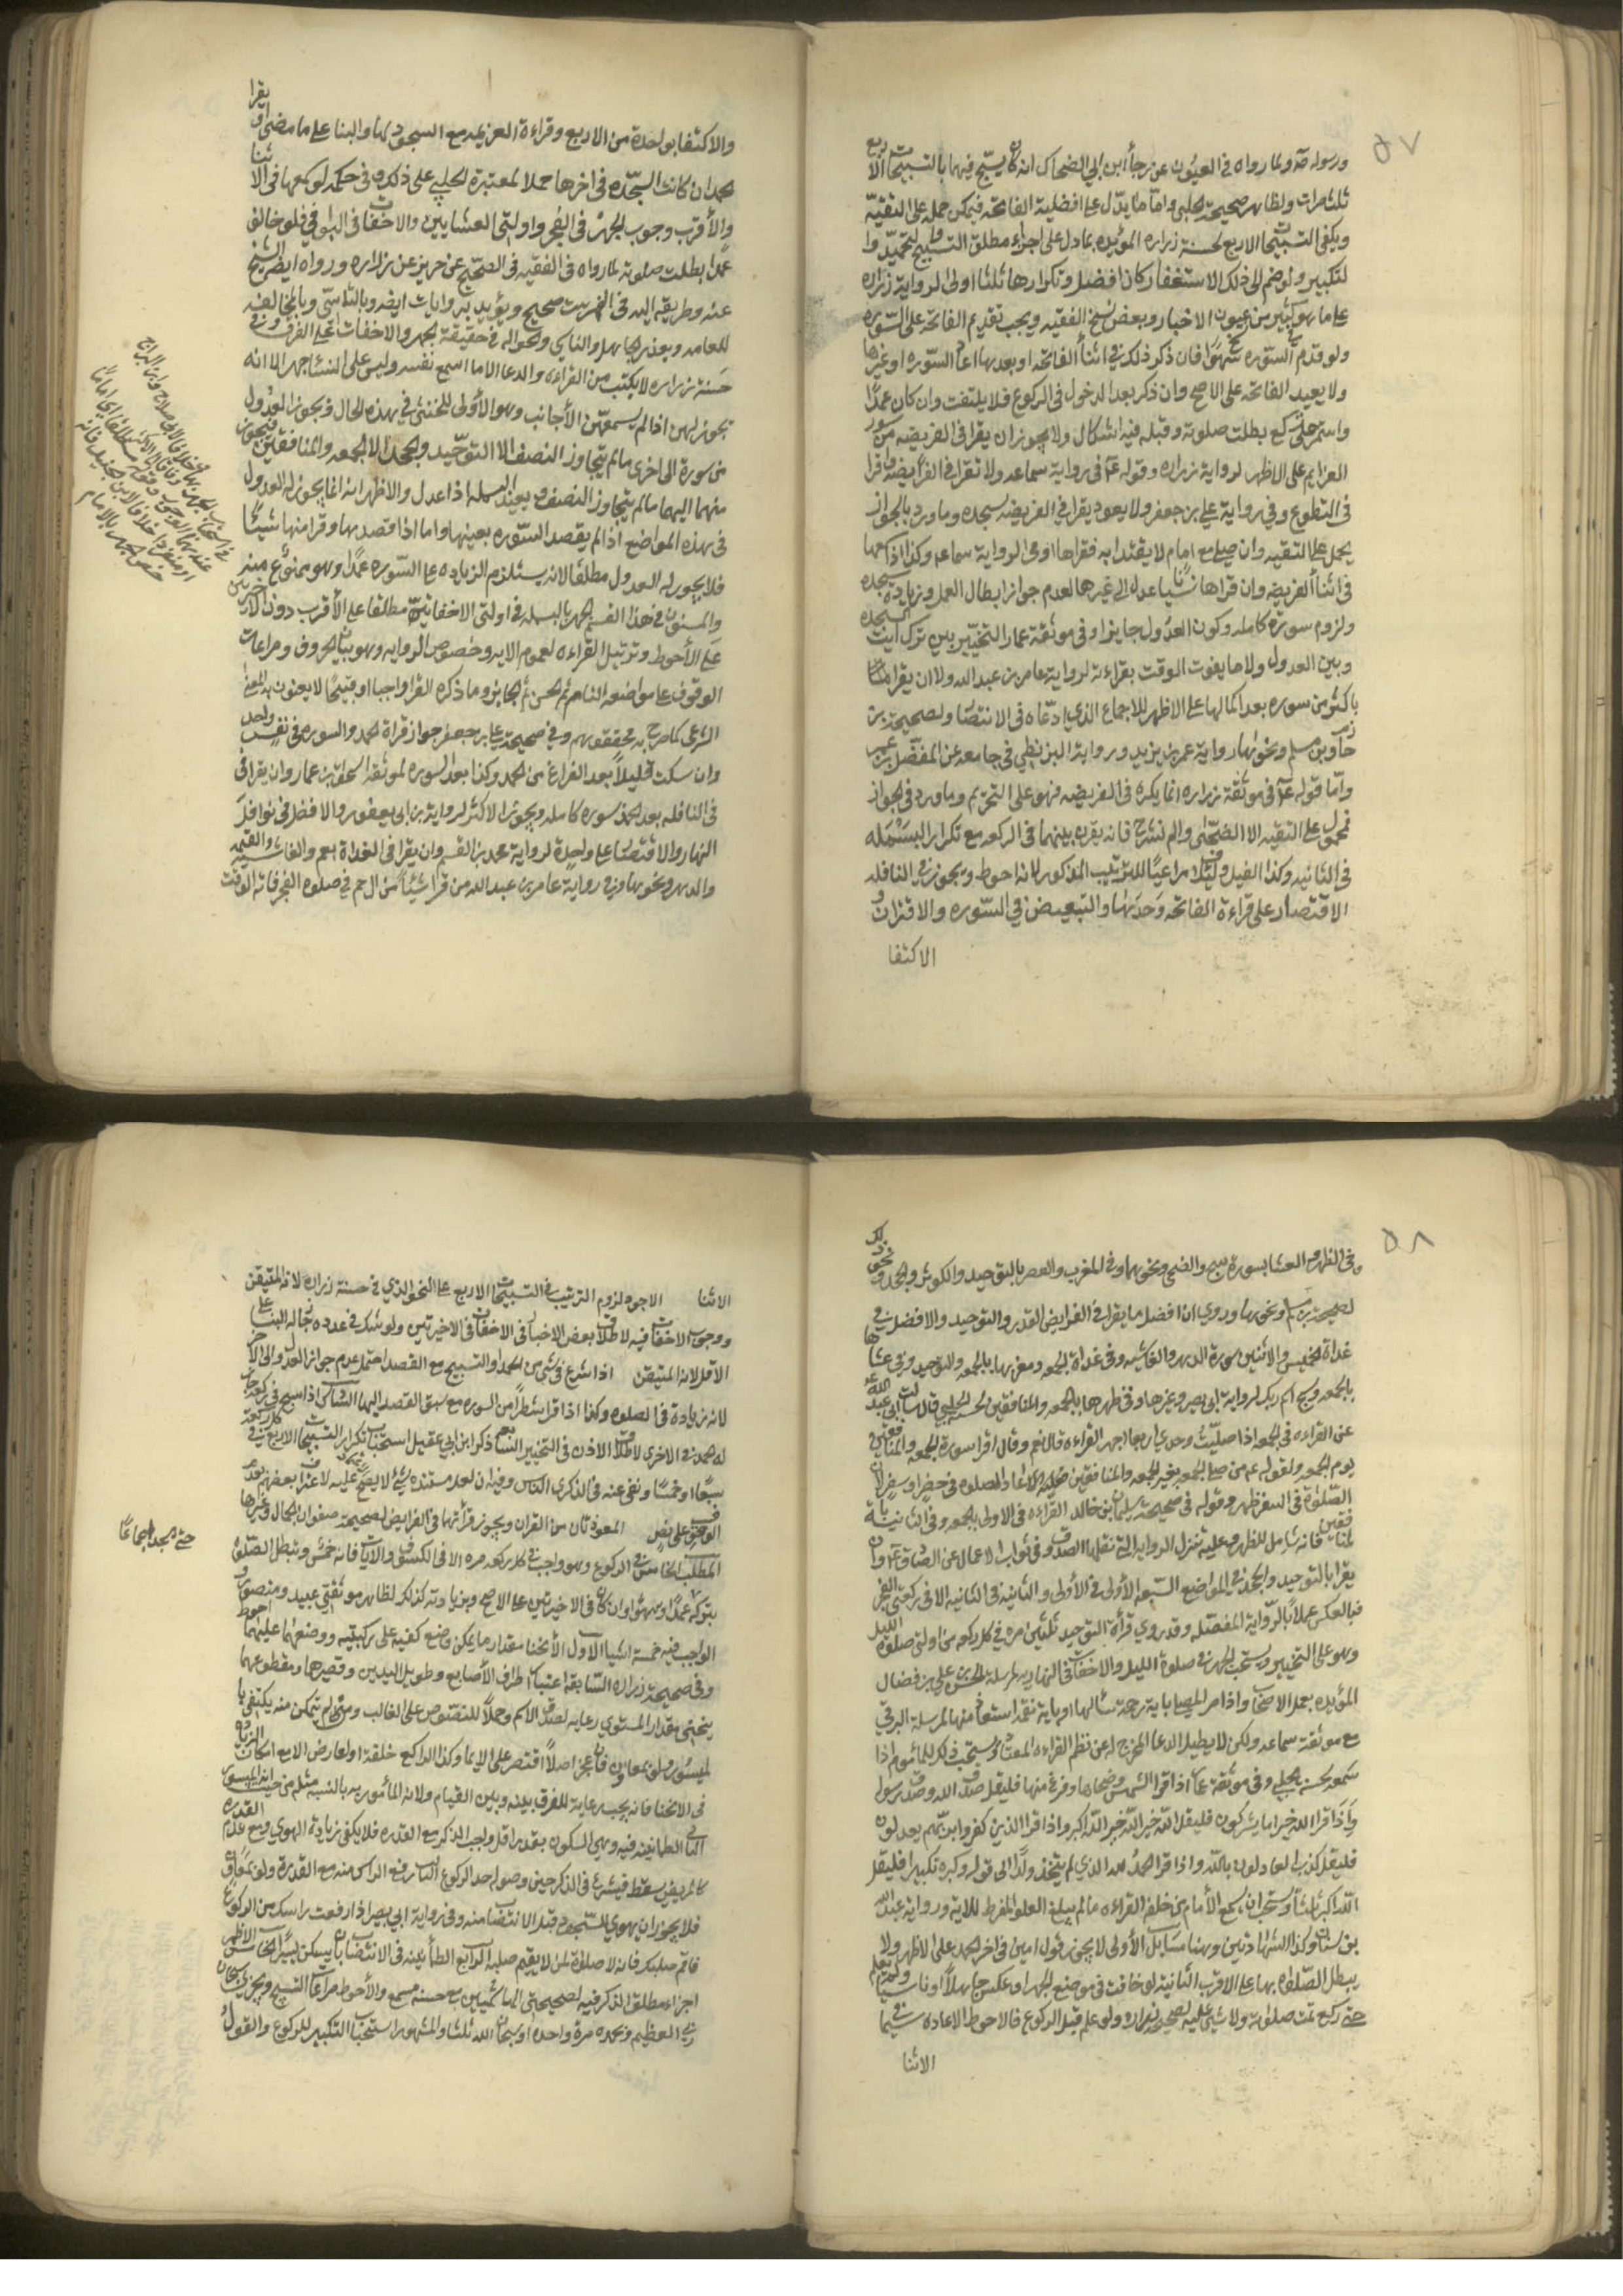 ٥٧
ورسوله صه ولما رواه في العيون عن رجأ ابن ابي الضحاك انه كان يسبّح فيهما بالتسبيحات الاربع
ثلث مرات ولظاهر صحيحة الحلبي واما ما يدّل على افضلية الفاتحه فيمكن حمله على التقيّه
ويكفي التسبيحات الاربع لحسنة زراره المؤيده بما دل على اجزاء مطلق التسبيح والتحميد وا
لتكبير ولو ضم الى ذلك الاستغفار كان افضل وتكرارها ثلثا اولى لرواية زراره
على ما هو كثير من عيون الاخبار وبعض نسخ الفقيه ويجب تقديم الفاتحه على السّوره
ولو قدم السّوره سهوًا فان ذكر ذلك في اثنأ الفاتحه او بعدها اعاد السّوره او غيرها
ولا يعيد الفاتحه على الاصح وان ذكر بعد الدخول في الركوع فلا يلتفت وان كان عمدًا
واستمر حتى ركع بطلت صلوته وقبله فيه اشكال ولا يجوز ان يقرا في الفريضه من سور
العزايم على الاظهر لرواية زراره وقوله عه في رواية سماعه ولا تقرا في الفريضة واقرا
في التطوع وفي رواية علي بن جعفر ولا يعود يقرا في الفريضه بسجده وما ورد بالجواز
يحمل على التقيه وان صلى مع امام لا يقتدا به فقراها اومى لرواية سماعه وكذا اذا سمعها
في اثنأ الفريضه وان قراها ناسيًا عدل الى غيرها لعدم جواز ابطال العمل وزيادة سجده
ولزوم سورة كامله وكون العدول جايزا وفي موثقة عمار التخيّير بين ترك ايت السجده
وبين العدول ولا ما يفوت الوقت بقراءته لرواية عامر بن عبد الله ولا ان يقرا
باكثر من سوره بعد اكمالها على الاظهر للاجماع الذي ادّعاه في الانتصار ولصحيحة بن
مسلم ونحوها رواية عمر بن يزيد ورواية البزنطي في جامعه عن المفضّل بن عمر
وامّا قوله عه في موثقة زراره انما يكره في الفريضه فهو على التحريم وما ورد في الجواز
فمحمول على التقيه الا الضحى والم نشرح فانه يقره بينهما في الركعه مع تكرار البسمله
في الثانيه وكذا الفيل ولئلاف مراعيًا للترتيب المذكور لانه احوط ويجوز في النافله
الاقتصار على قراءة الفاتحه وحدها والتبعيض في السّوره والاقتران و
الاكتفا
والاكتفا بواحدة من الاربع وقراءة العزيمه مع السجود لها والبنا على ما مضى او يقرا
الحمد ان كانت السجده في اخرها حملا لمعتبرة الحلبي على ذلك وفي حكمه لو سمعها في الاثنا
والأقرب وجوب الجهر في الفجر واولتي العشايين والاخفات في البواقي فلو خالف
عمدًا بطلت صلوته لما رواه في الفقيه في الصحيح عن حريز عن زراره ورواه ايضًا الشيخ
عنه وطريقه اليه في الفهرست صحيح ويؤيد به روايات ايضه وبالتأسّي وبالمخالفه
للعامه ويعذر الجاهل والناسي ونحواه في حقيقة الجهر والاخفات على الفرق وفي
حَسَنة زراره لا يكتب من القراءه والدعا الا ما اسمع نفسه وليس على النسا جهر الا انه
يجوز لهن اذا لم يسمعهن الأجانب وهو الأولى للخنثى في هذه الحال ويجوز العدول
من سورة الى اخرى ما لم يتجاوز النصف الا التوحيد والجحد الا الجمعه والمنافقين فيجوز
منهما اليهما ما لم يتجاوز النصف ويعيد البسمله اذا عدل والاظهر انه انما يجوز له العدول
في هذه المواضع اذا لم يقصد السّوره بعينها واما اذا قصدها وقرا منها شيئًا
فلا يجوز له العدول مطلقا لانه يستلزم الزياده على السّوره عمدًا وهو ممنوع منه
والمسنون في هذا القسم الجهر بالبسمله في اولتي الاخفاتيّة مطلقا على الأقرب دون الاخيرتين
على الأحوط وترتيل القراءه لعموم الايه وخصوص الروايه وهو بيان الحروف ومراعات
الوقوف على مواضعه التام ثم الحسن ثم الجايز وما ذكره القرا واجبا او قبيحًا لا يعنون به المعنى
الشرعى كما صرح به محققوهم وفي صحيحة علي بن جعفر جواز قراة الحمد والسوره في نفس واحد
وان سكت قليلاً بعد الفراغ من الحمد وكذا بعد السوره لموثقة اسحق بن عمار وان يقرا في
في النافله بعد الحمد سوره كامله ويجوز الاكثر لرواية بن ابي يعفور والافضل في نوافل
النهار والاقتصار على واحدة لرواية محمد بن القسم وان يقرا في الغداة بعم والغاشيه والقيمه
والدهر ونحوها وفي رواية عامر بن عبد الله من قرا شيئاً من ال حم في صلوه الفجر فاته الوقت
٥٨
وفى الظهر والعشا بسورة سبح والضحى ونحوهما وفي المغرب والعصر بالتوحيد والكوثر والجحد ونحو ذلك
لصحيحة بن مسلم ونحوها وروي ان افضل ما يقرا في الفرايض القدر والتوحيد والافضل في
غداة الخميس والاثنين سورة الدهر والغاشيه وفي غداة الجمعه ومغربها بالجمعه والتوحيد وفي عشاها
بالجمعه وسبح اسم ربك لرواية ابي بصير وغيرها وفي ظهرها بالجمعه والمنافقين لحسنة الحلبي قال سالت ابي عبد الله عه
عن القراءه في الجمعه اذا صليّت وحدي اربعا اجهر القراءه قال نعم وقال اقرا سورة الجمعه والمنافقين
يوم الجمعه ولقوله عه من صلى الجمعه بغير الجمعه والمنافقين اعاد الصلوه في حضر او سفر لان
الصّلوة في السفر ظهر وقوله في صحيحة سليمان بن خالد القراءه في الاولى بالجمعه وفي الثانية بالمنافقين
فانه شامل للظهر وعليه تنزل الروايه التي نقلها الصدوق في ثواب الاعمال عن الصادق عه وان
يقرا بالتوحيد والجحد في المواضع السّبعه الأولى في الأولى والثانيه في الثانيه الا في ركعتي الفجر
فبالعكس عملاً بالرّواية المفصّله وقد روي قرأة التوحيد ثلثين مره في كل ركعه من اولتى صلوة الليل
وهو على التخيير ويستحب الجهر في صلوة الليل والاخفات في النهاريه لمرسلة الحسن بن علي بن فضال
المؤيده بعمل الاصحاب واذا مر المصلى باية رحمة سالها او باية نقمه استعاذ منها لمرسلة البرقي
مع موثقه سماعه ولكن لا يطيل الدعا المخرج له عن نظم القراءه المعتاد ويستحب ذلك للمأموم اذا
سمعه لحسنة الحلبي وفي موثقة عمار اذا قرا الشمس وضحاها وفرغ منها فليقل صدق الله وصدق رسوله
وَاذا قرا الله خير اما يشركون فليقل الله خير الله خير الله اكبر واذا قرا الذين كفروا بربّهم يعدلون
فليقل كذب العادلون بالله واذا قرا الحمد لله الذي لم يتخذ ولدًا الى قوله وكبره تكبيرا فليقل
الله اكبر ثلثاً ويستحب ان يسمع الأمام من خلفه القراءه ما لم يبلغ العلو المفرط للايه ورواية عبد الله
بن سنان وكذا الشهادتين وهنا مسائل الأولى لا يجوز قول امين في اخر الحمد على الاظهر ولا
يبطل الصّلوه بها على الاقرب الثانية لو خافت في موضع الجهر او عكس جاهلاً او ناسيًا ولم يعلم
حتى ركع تمت صلوته ولا شيئ عليه لصحيحة زراره ولو علم قبل الركوع فالاحوط الاعاده سيما
الاثنا
الاثنا الاجود لزوم الترتيب في التسبيحات الاربع على النحو الذي في حسنة زراره لانه المتيقن
ووجوب الاخفات فيه لاطلاق بعض الاخبار في الاخفات في الاخيرتين ولو شك في عدده جاز له البنا على
الاقل لانه المتيقن اذا شرع في شي من الحمد او التسبيح مع القصد احتمل عدم جواز العدول الى الاخر
لانه زيادة في الصلوه وكذا اذا قرا شطراً من السوره مع سبق القصد اليها الثالث اذا سبح في ركعة جاز
له الحمد في الاخرى لاطلاق الاذن في التخيير الرابع ذكر ابن ابي عقيل استحباب تكرار التسبيحات الاربع في كل ركعة
سبعًا او خمسًا ونفى عنه في الذكرى الباس وفيه ان لعدم مستنده شئ لا يصح
المعوذتان من القران ويجوز قرأتهما في الفرايض لصحيحة صفوان الجمال وغيرها
المطلب الخامس في الركوع وهو واجب في كل ركعه مره الا في الكسوف والايات فانه خمس وتبطل الصّلوة
بتركه عمدًا وسهوًا وان كان في الاخيرتين على الاصح وبزيادته كذلك لظاهر موثقتي عبيد ومنصور و
الواجب فيه خمسة اشيا الاول الأنحنا مقدار ما يمكن وضع كفيه على ركبتيه ووضعهما عليهما احوط
وفى صحيحة زراره السّابقة اعتبار اطراف الأصابع وطويل اليدين وقصيرهما ومقطوعهما
ينحني مقدار المستوي رعاية لصدق الاسم وحملاً للنصوص على الغالب ومتى لم يتمكن منه يكتفي با
لميسور ولو بمعاون فان عجز اصلاً اقتصر على الايما وكذا الراكع خلقة او لعارض الا مع امكان الزياده
في الانحنا فانه يجب رعاية للفرق بينه وبين القيام ولانه المأمور به بالنسبه مثله من حيث انه الميسور
الثاني الطمانينه فيه وهي السكون بقدر اقل واجب الذكر مع القدره فلا يكفي زيادة الهوي ومع عدم القدره
كالمريض يسقط فيشرع في الذكر حين وصوله حد الركوع الثالث رفع الراس منه مع القدرة ولو بمعاون
فلا يجوز ان يهوي للسّجود قبل الانتصاب منه وفي رواية ابي بصير اذا رفعت راسك من الركوع
فاقم صلبك فانه لا صلوة لمن لا يقيم صلبه الرابع الطمأنينه في الانتصاب بان يسكن يسيرًا الخامس الاظهر
اجزاء مطلق الذكر فيه لصحيحتي الهشاميين مع حسنه مسمع والأحوط مراعات التسبيح ويجزي سبحان
ربي العظيم وبحمده مرة واحده او سبحان الله ثلثا والمشهور استحباب التكبير للركوع والقول
حتى مجد اجماعًا